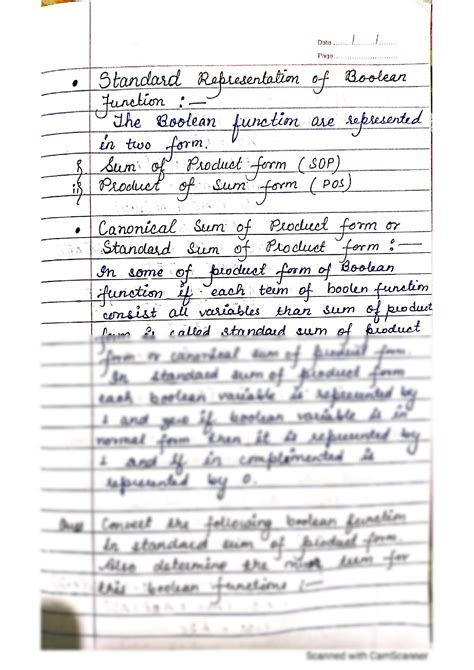 Date ...../...../.....
Page.................
• Standard Representation of Boolean
Function :—
The Boolean function are represented
in two form.
i) Sum of Product form (SOP)
ii) Product of Sum form (POS)
• Canonical Sum of Product form or
Standard Sum of Product form :
In some of product form of Boolean
function if each team of boolen function
consist all variables than sum of product
form is called standard sum of product
form or canonical sum of product form.
In standard sum of product form
each boolean variable is represented by
1 and zero if boolean variable is in
normal form then it is represented by
1 and if in complemented is
represented by 0.
Convert the following boolean function
In standard sum of product form.
Also determine the term for
this boolean functions :—
Scanned with CamScanner